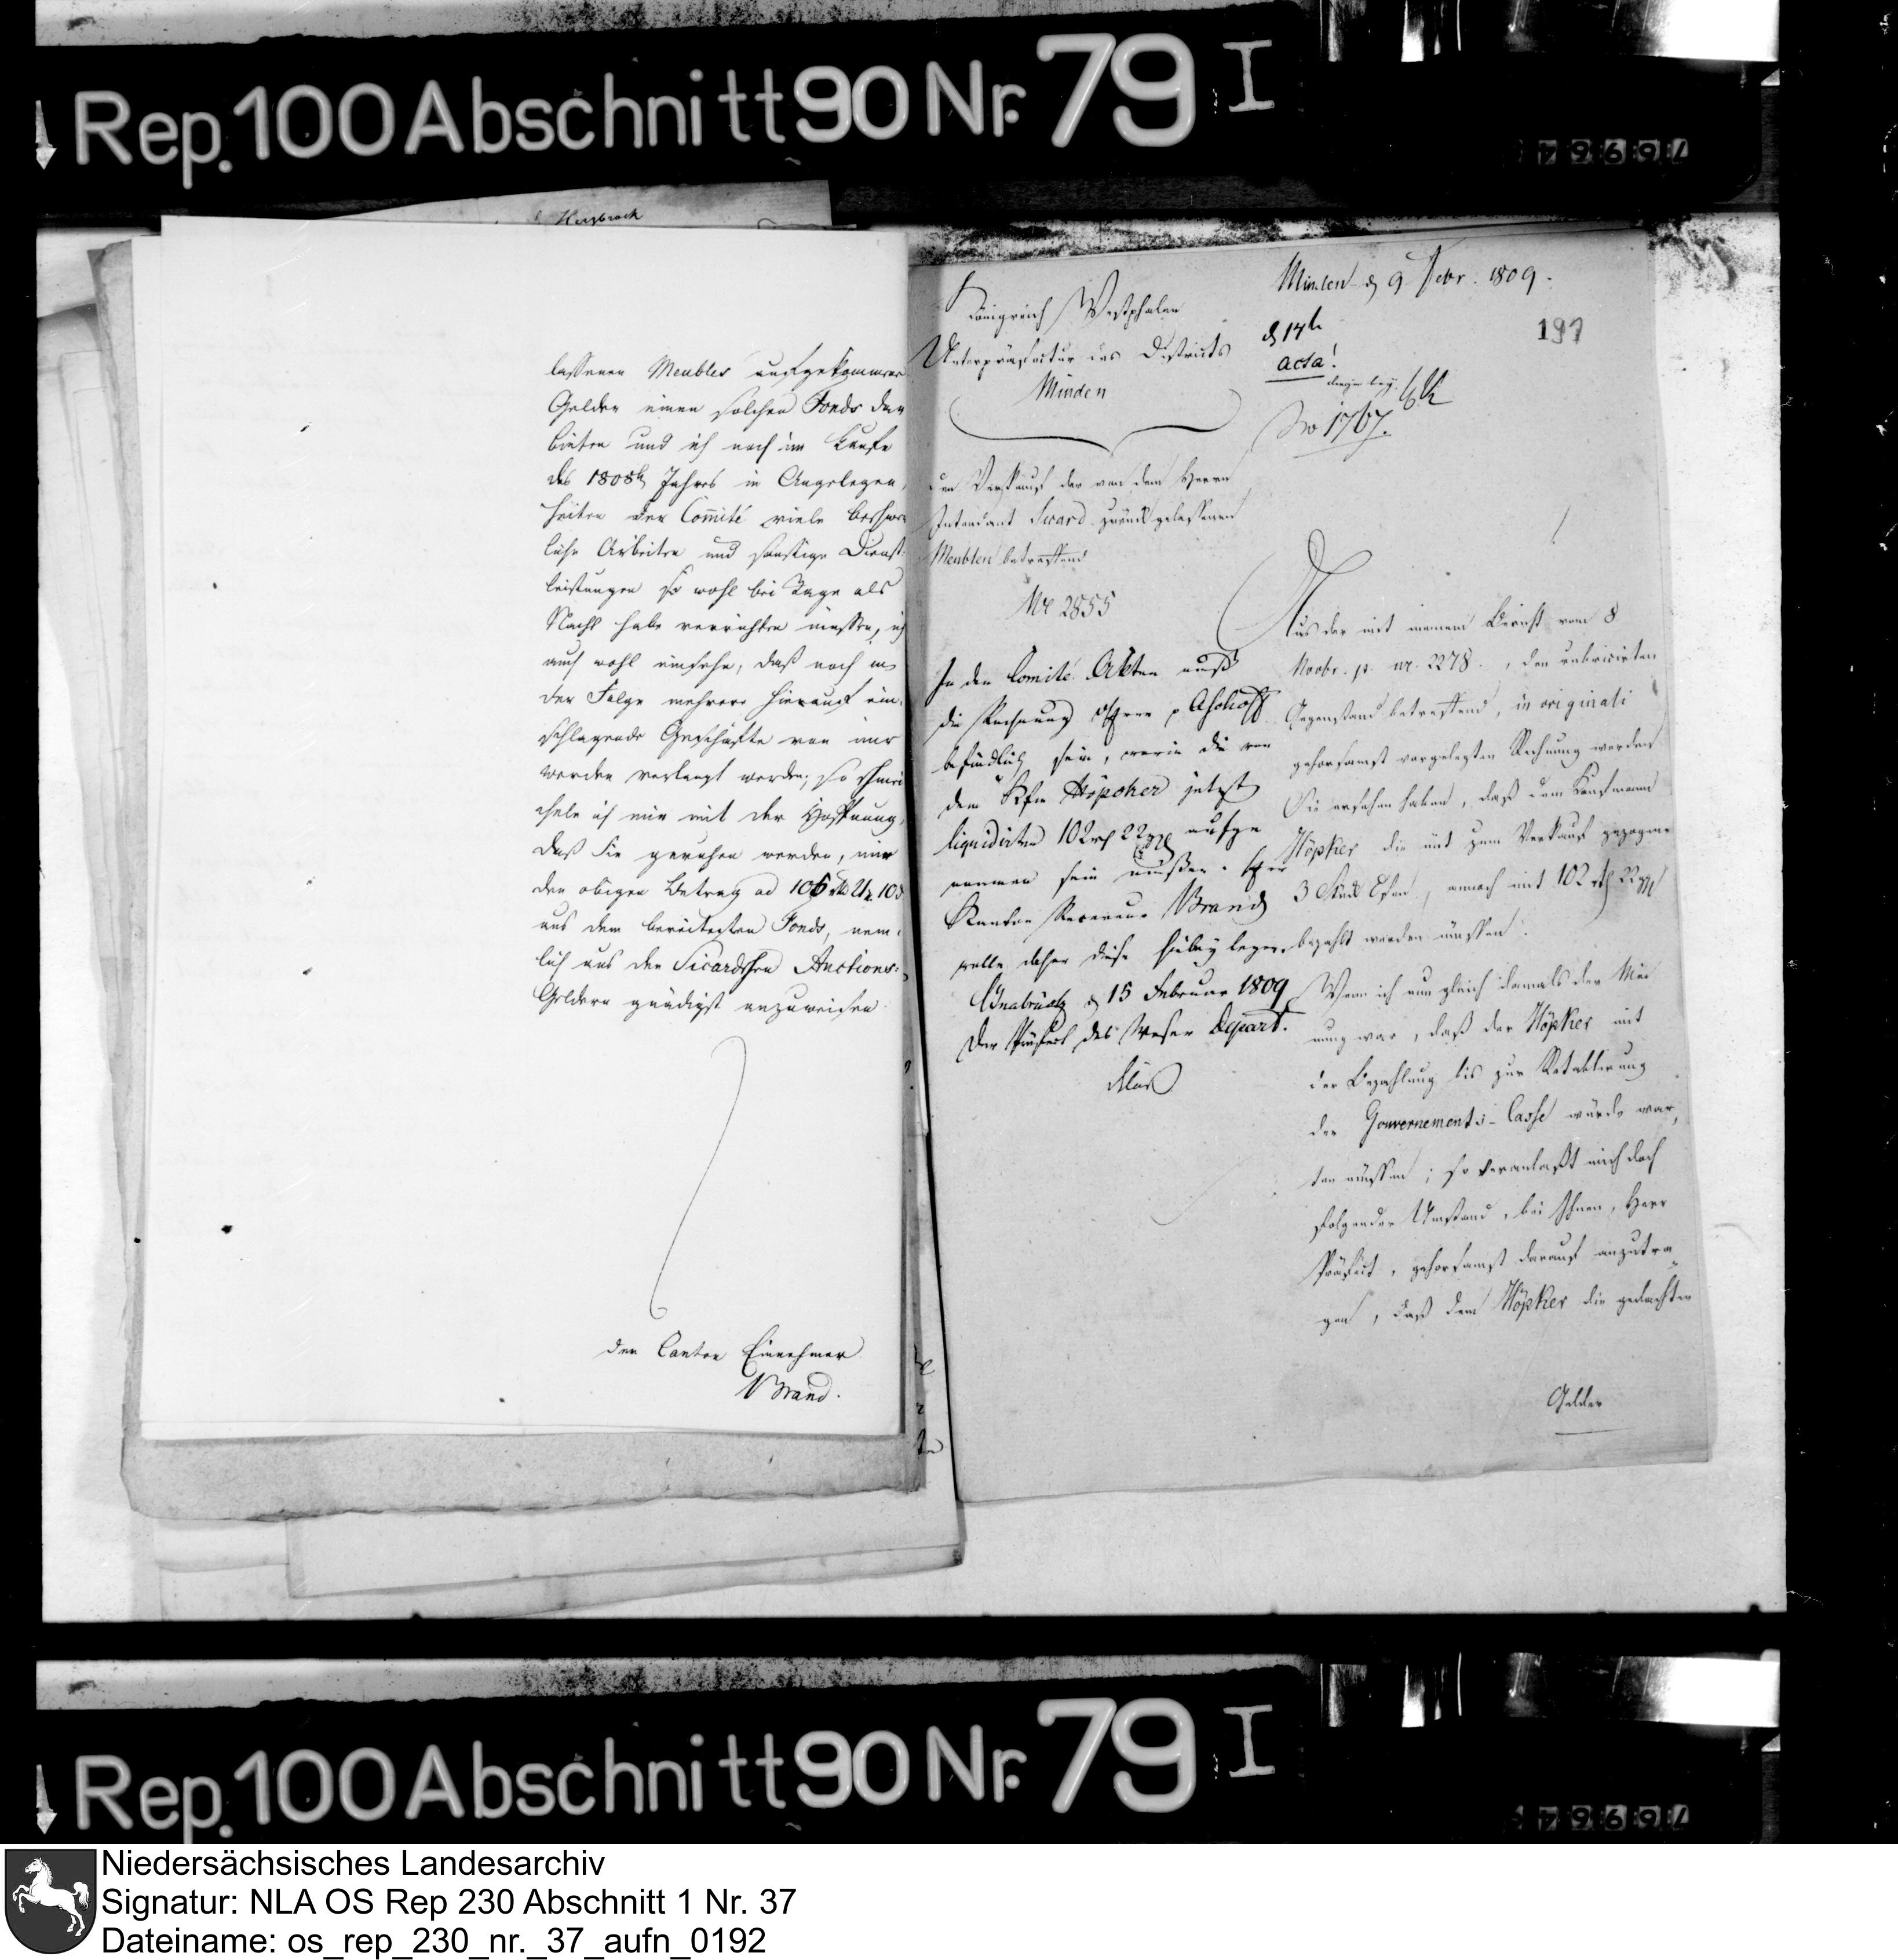 Rep. 100 Abschnitt 90 Nr. 79 I
Herzbrock
lassenen Meubles aufgekommenen
Gelder einen solchen Fonds dar
bieten und ich noch im Laufe
des 1808t Jahres in Angelegen,
heiten der Comité viele beschwer
liche Arbeiten und sonstige Dienst
leistungen so wohl bei Tage als
Nacht habe verrichten müssen, ich
auch wohl einsehe, daß noch in
der Folge mehrere hierauf ein,
schlagende Geschäfte von mir
werden verlangt werden; so schmei
chele ich mir mit der Hoffnung,
daß Sie geruhen werden, mir
den obigen Betrag ad
aus dem bereitesten Fonds, nem,
lich aus den Sicardschen Auctions,
Geldern gnädigst anzuweisen.
Der Canton Einnehmer
Brand.
Königreich Westphalen
Unterpräfectur des Districts
Minden
Minden d 9 Febr. 1809.
197
d 14t
acta!
No 1767.
den Verkauf der von dem Herrn
Intendant Sicard zurückgelassenen
Meublen betreffend
Nr 2855
In den Comité Akten muß
die Rechnung des p Aschoff
befindlich sein, worin die von
dem Kfm Höpcker jetzt
liquidirten 102 rt 22 ggl aufge
nommen sein müßen. Herr
Kanton Receveur Brand
wolle daher diese hiebey legen.
Osnabrück d 15 Februar 1809
Der Präfect des Weser Depart.
Aus der mit meinem Bericht vom 8
Novbr. p. nr. 2278., den rubricirten
Gegenstand betreffend, in originali
gehorsamst vorgelegten Rechnung werden
Sie ersehen haben, daß dem Kaufmann
Höpker die mit zum Verkauf gezogene
3 Stück Ofen, annoch mit 102 rt 22 ggl
bezahlt werden müssen.
Wenn ich nun gleich damals der Mei
nung war, daß der Höpker mit
der Bezahlung bis zur Retablirung
der Gouvernements-Casse würde war,
ten müssen; so veranlaßt mich doch
folgender Umstand, bei Ihnen, Herr
Präfect, gehorsamst darauf anzutra
gen, daß dem Höpker die gedachten
Gelder
Rep. 100 Abschnitt 90 Nr. 79 I
Niedersächsisches Landesarchiv
Signatur: NLA OS Rep 230 Abschnitt 1 Nr. 37
Dateiname: os_rep_230_nr._37_aufn_0192